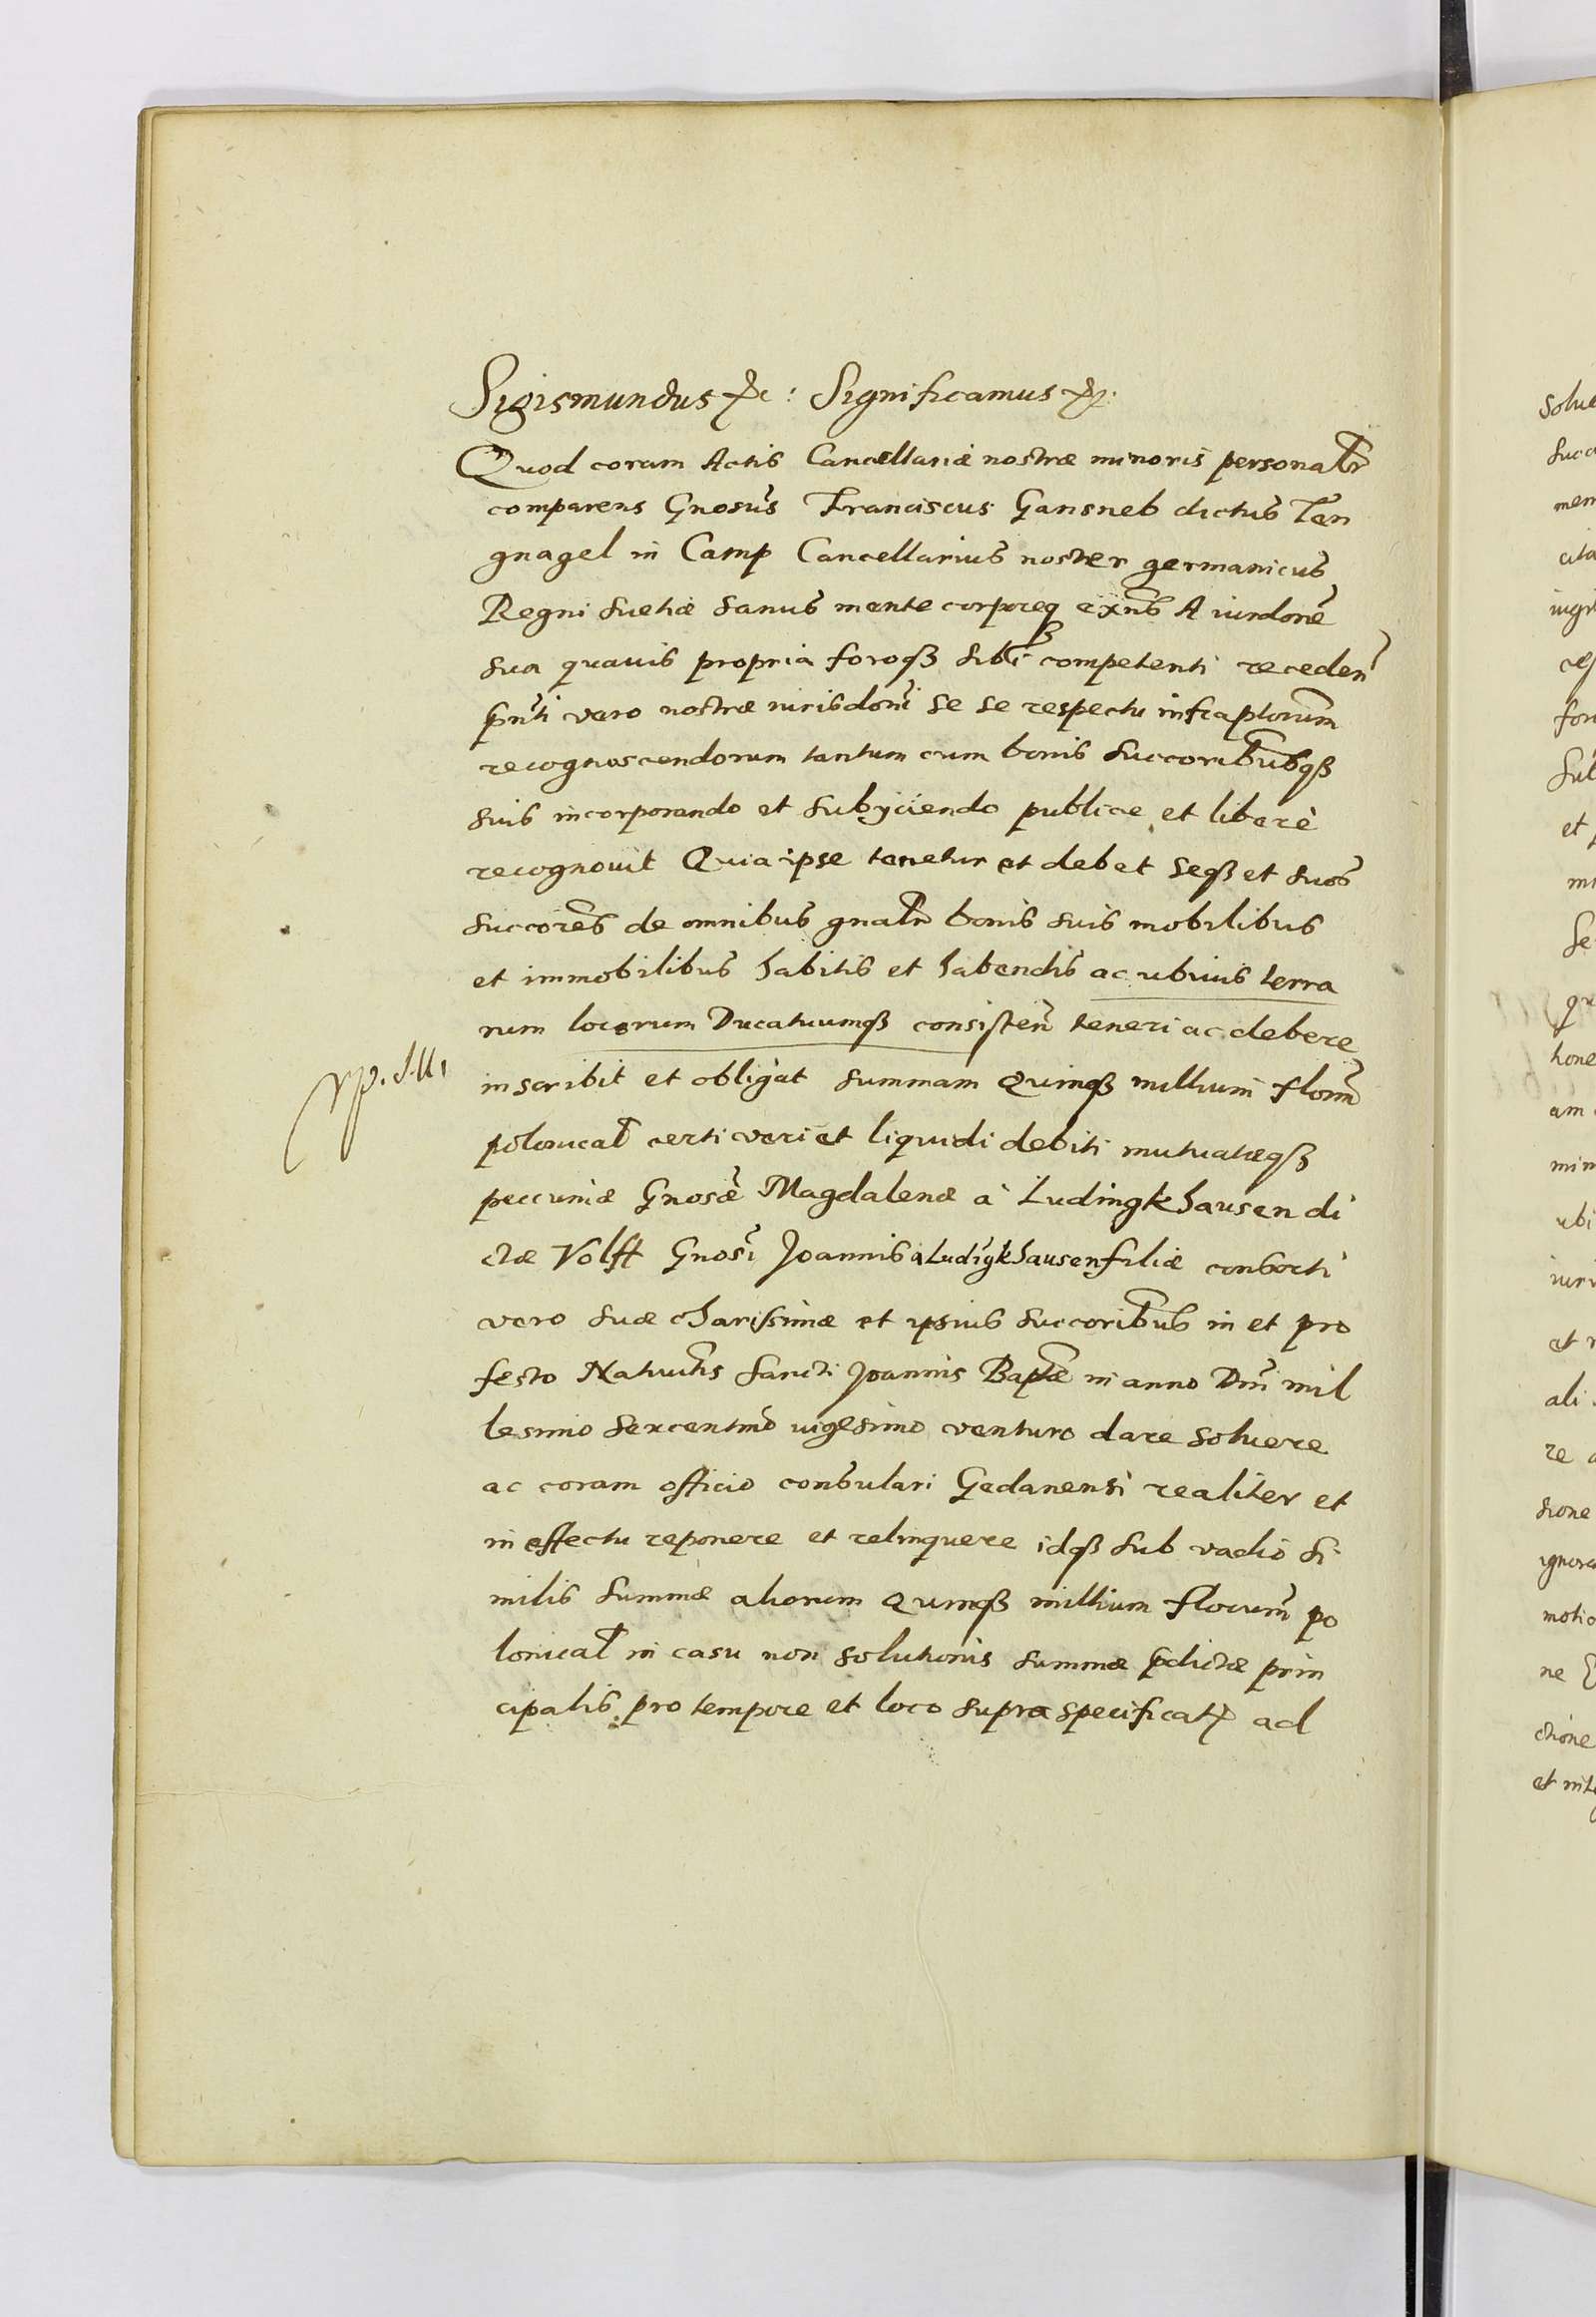 Sigismundus &c: Significamus &c.
Quod coram Actis Cancellariæ nostræ minoris personalr
comparens Gnosus Franciscus Gansneb dictus Ten
gnagel in Camp Cancellarius noster germanicus
Regni Suetiæ sanus mente corporeq exns A iurdone
sua quauis propria foroq sibi competenti receden
pnti vero nostræ iurisdoni se se respectu infraptorum
recognoscendorum tantum cum bonis succoribusq
suis incorporando et subyciendo publice et liberè
recognouit Quia ipse tenetur et debet seq et suos
succores de omnibus gnalr bonis suis mobilibus
et immobilibus habitis et habendis ac ubiuis terra
rum locorum Ducatuumq consisten teneri ac debere
inscribit et obligat summam Quinq millium floren
polonical certi veri et liquidi debiti mutuatæq
peccuniæ Gnosæ Magdalenæ à Ludingkhausen di
ctæ Volff Gnosi Joannis a Ludigkhausen filiæ consorti
vero suæ charissimæ et ipsius succoribus in et pro
festo Natiuitis Sancti Joannis Baptæ in anno Dni mil
lesimo sexcentmo uigesimo venturo dare soluere
ac coram officio consulari Gedanensi realiter et
in effectu reponere et relinquere idq sub vadio si
milis summæ aliorum Quinq millium florenum po
lonical in casu non solutionis summæ pdictæ prin
cipalis pro tempore et loco supra specificat ad